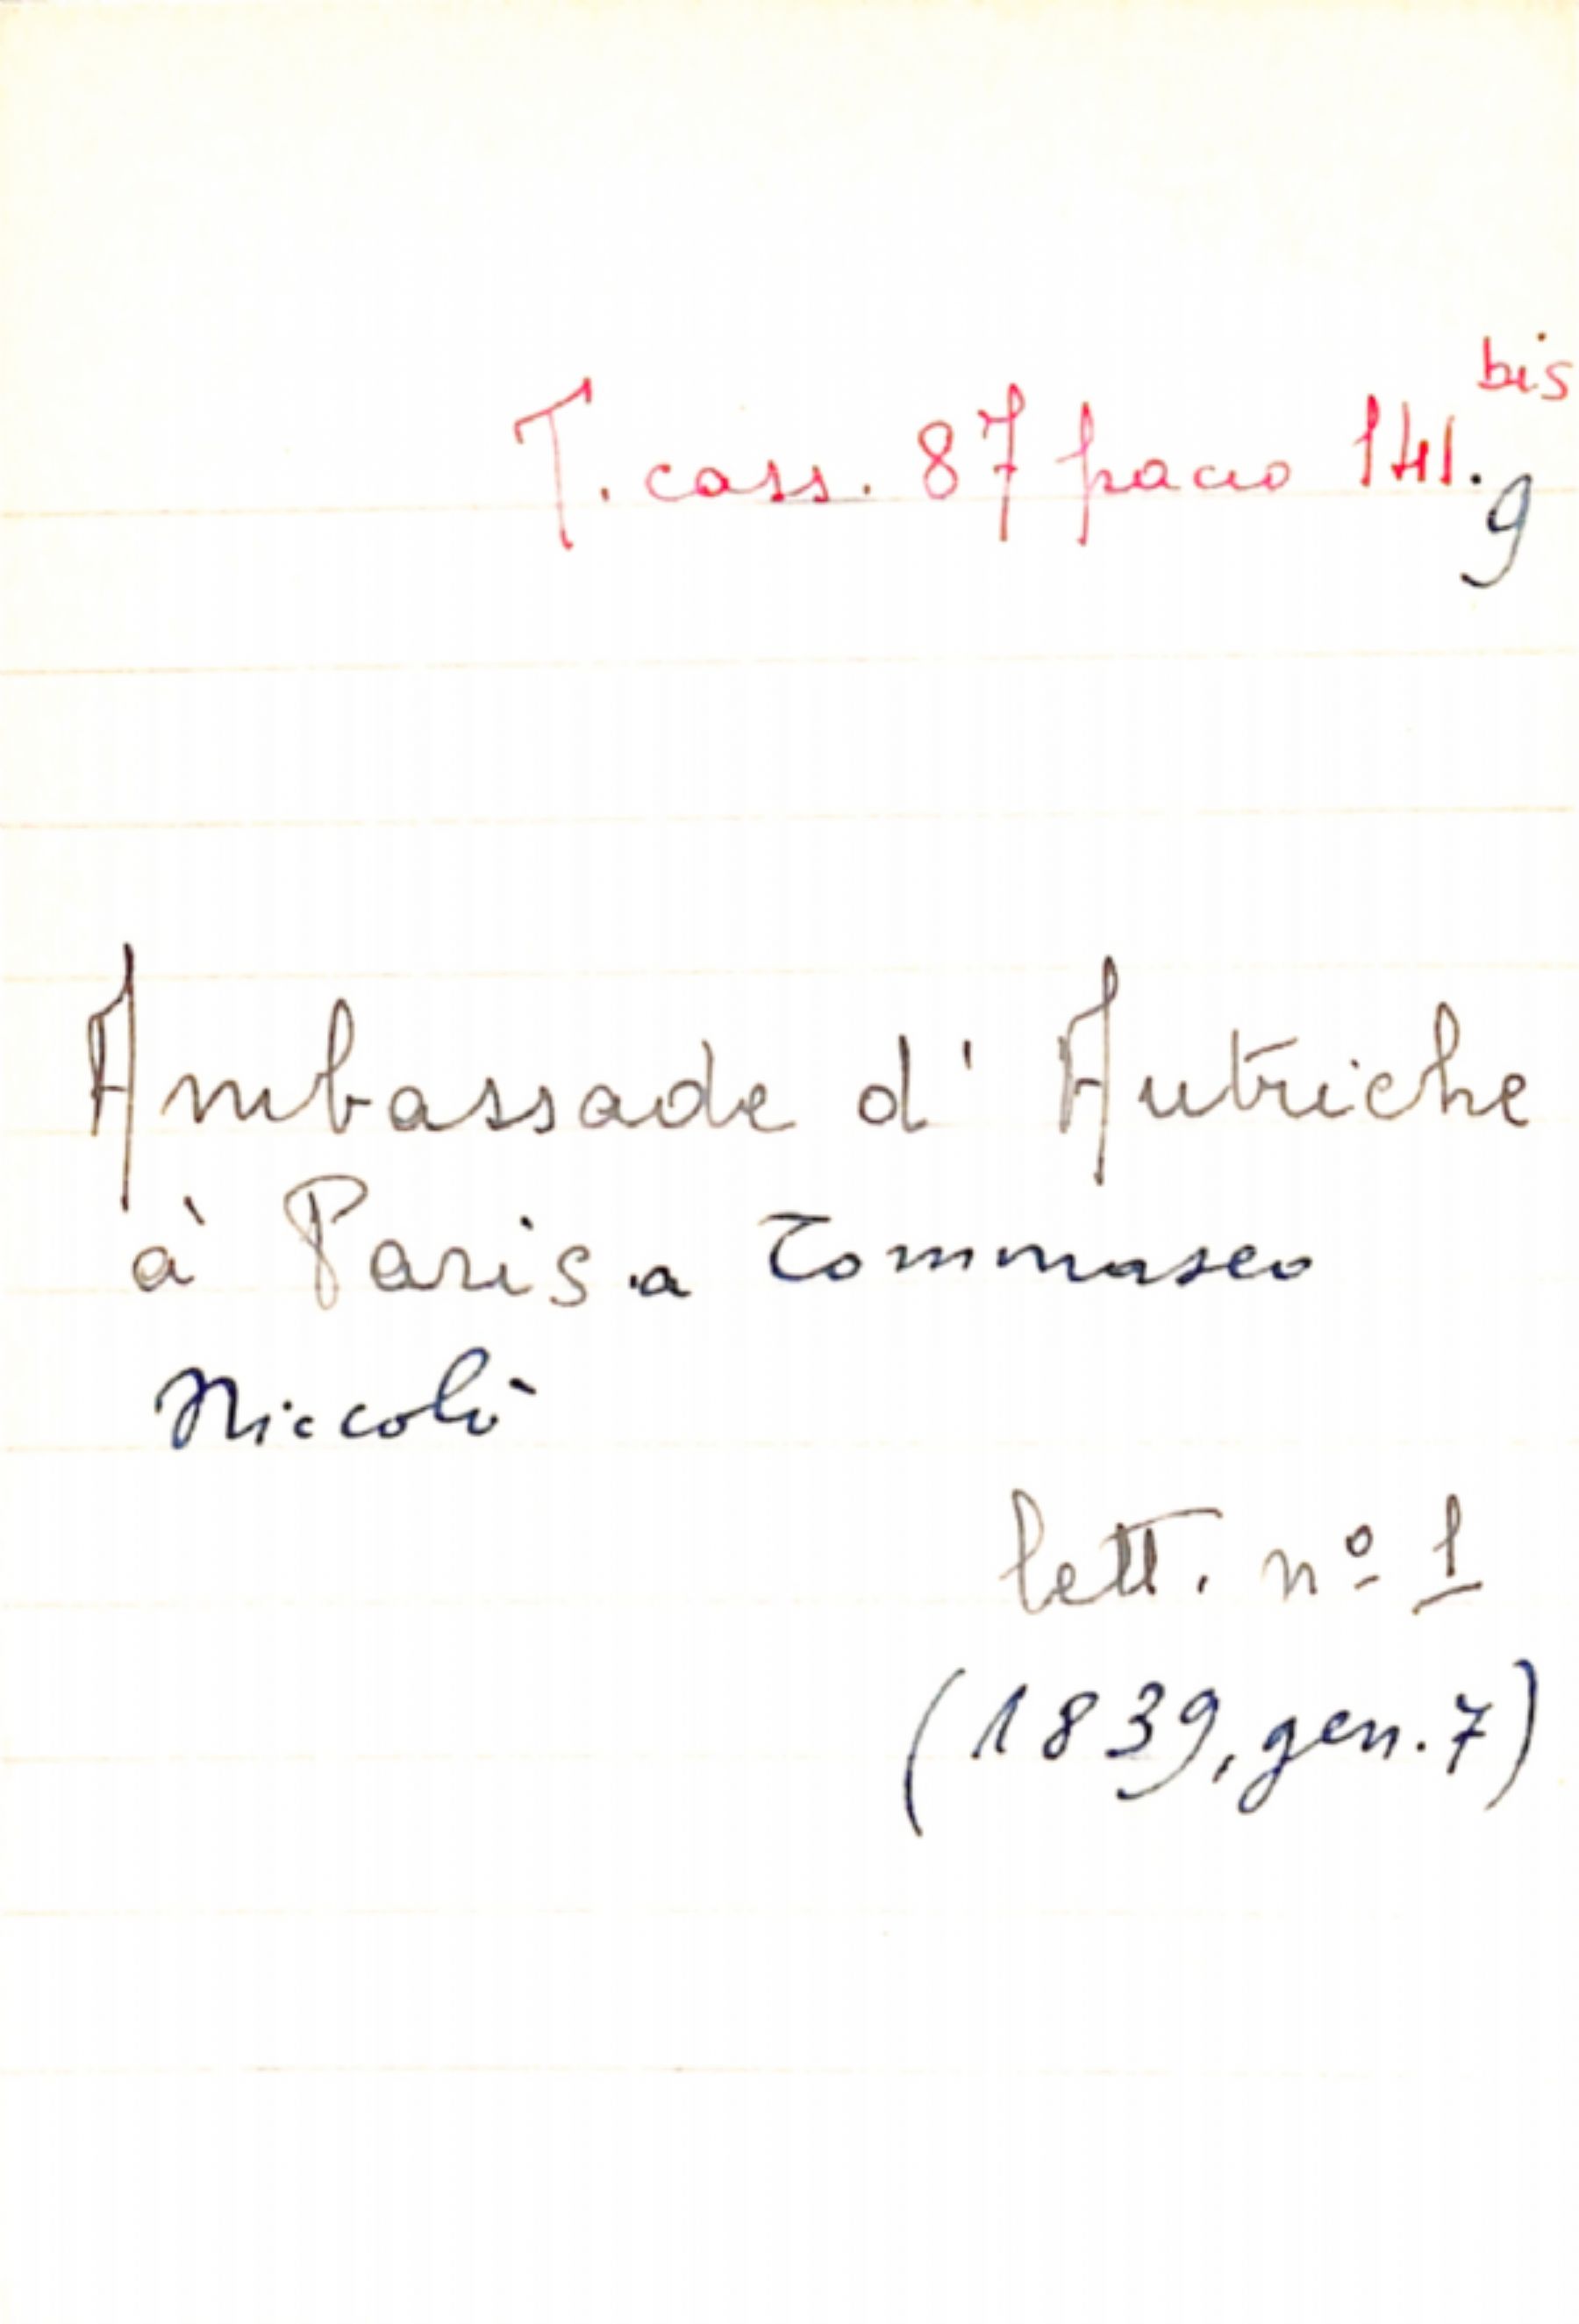 T. cass. 87 pacco 141. bis
9
Ambassade d' Autriche
à Paris. a Tommaseo
Niccolò
lett. nº 1
(1839, gen. 7)